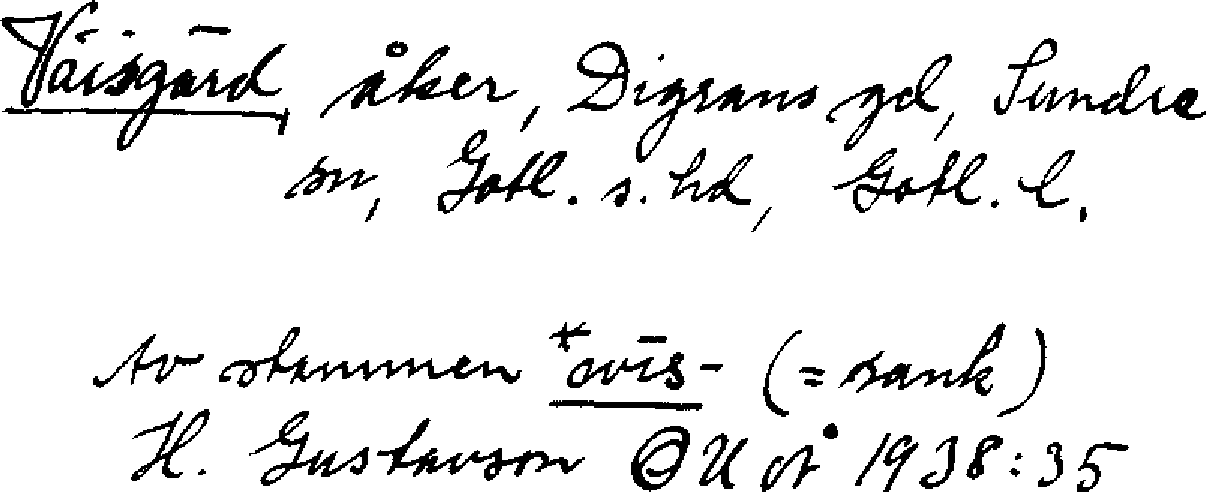 Väisgārd, åker, Digrans gd, Sundre
sn, Gotl. s. hd, Gotl. l.
Av stammen *wīs- (= sank)
H. Gustavson GUÅ 1938:35